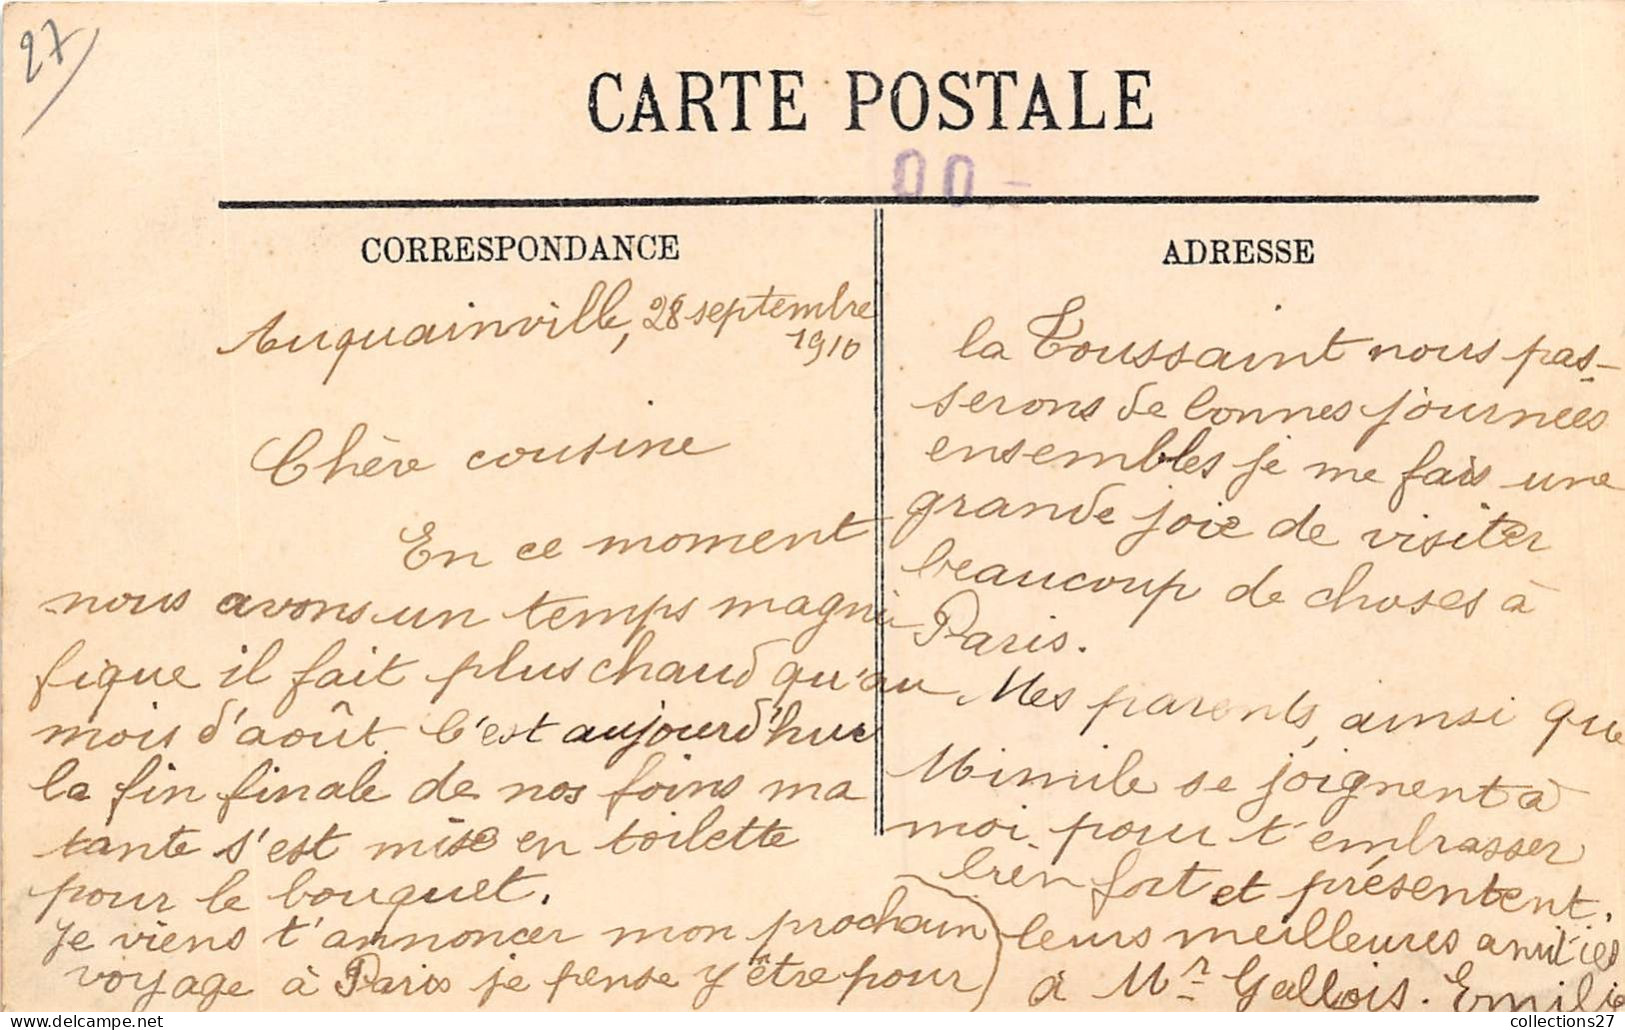 27
CARTE POSTALE
00-
CORRESPONDANCE
Auquainville, 28 septembre
1910
Chère cousine
En ce moment
nous avons un temps magni
fique il fait plus chaud qu'au
mois d'août. C'est aujourd'hui
la fin finale de nos foins ma
tante s'est mise en toilette
pour le bouquet.
Je viens t'annoncer mon prochain
voyage à Paris je pense y être pour
ADRESSE
la Toussaint nous pas-
serons de bonnes journées
ensembles je me fais une
grande joie de visiter
beaucoup de choses à
Paris.
Mes parents, ainsi que
Mimile se joignent à
moi pour t'embrasser
bien fort et présentent
leurs meilleures amitiés
à Mr Gallois. Emilie
collections27